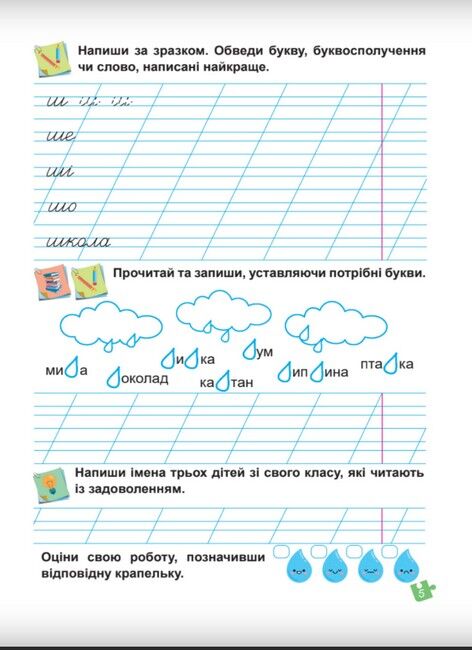 Напиши за зразком. Обведи букву, буквосполучення
чи слово, написані найкраще.
ш ш ш
ше
ши
шо
школа
Прочитай та запиши, уставляючи потрібні букви.
ми а
околад
и ка
ка тан
ум
ип ина
пта ка
Напиши імена трьох дітей зі свого класу, які читають
із задоволенням.
Оціни свою роботу, позначивши
відповідну крапельку.
5